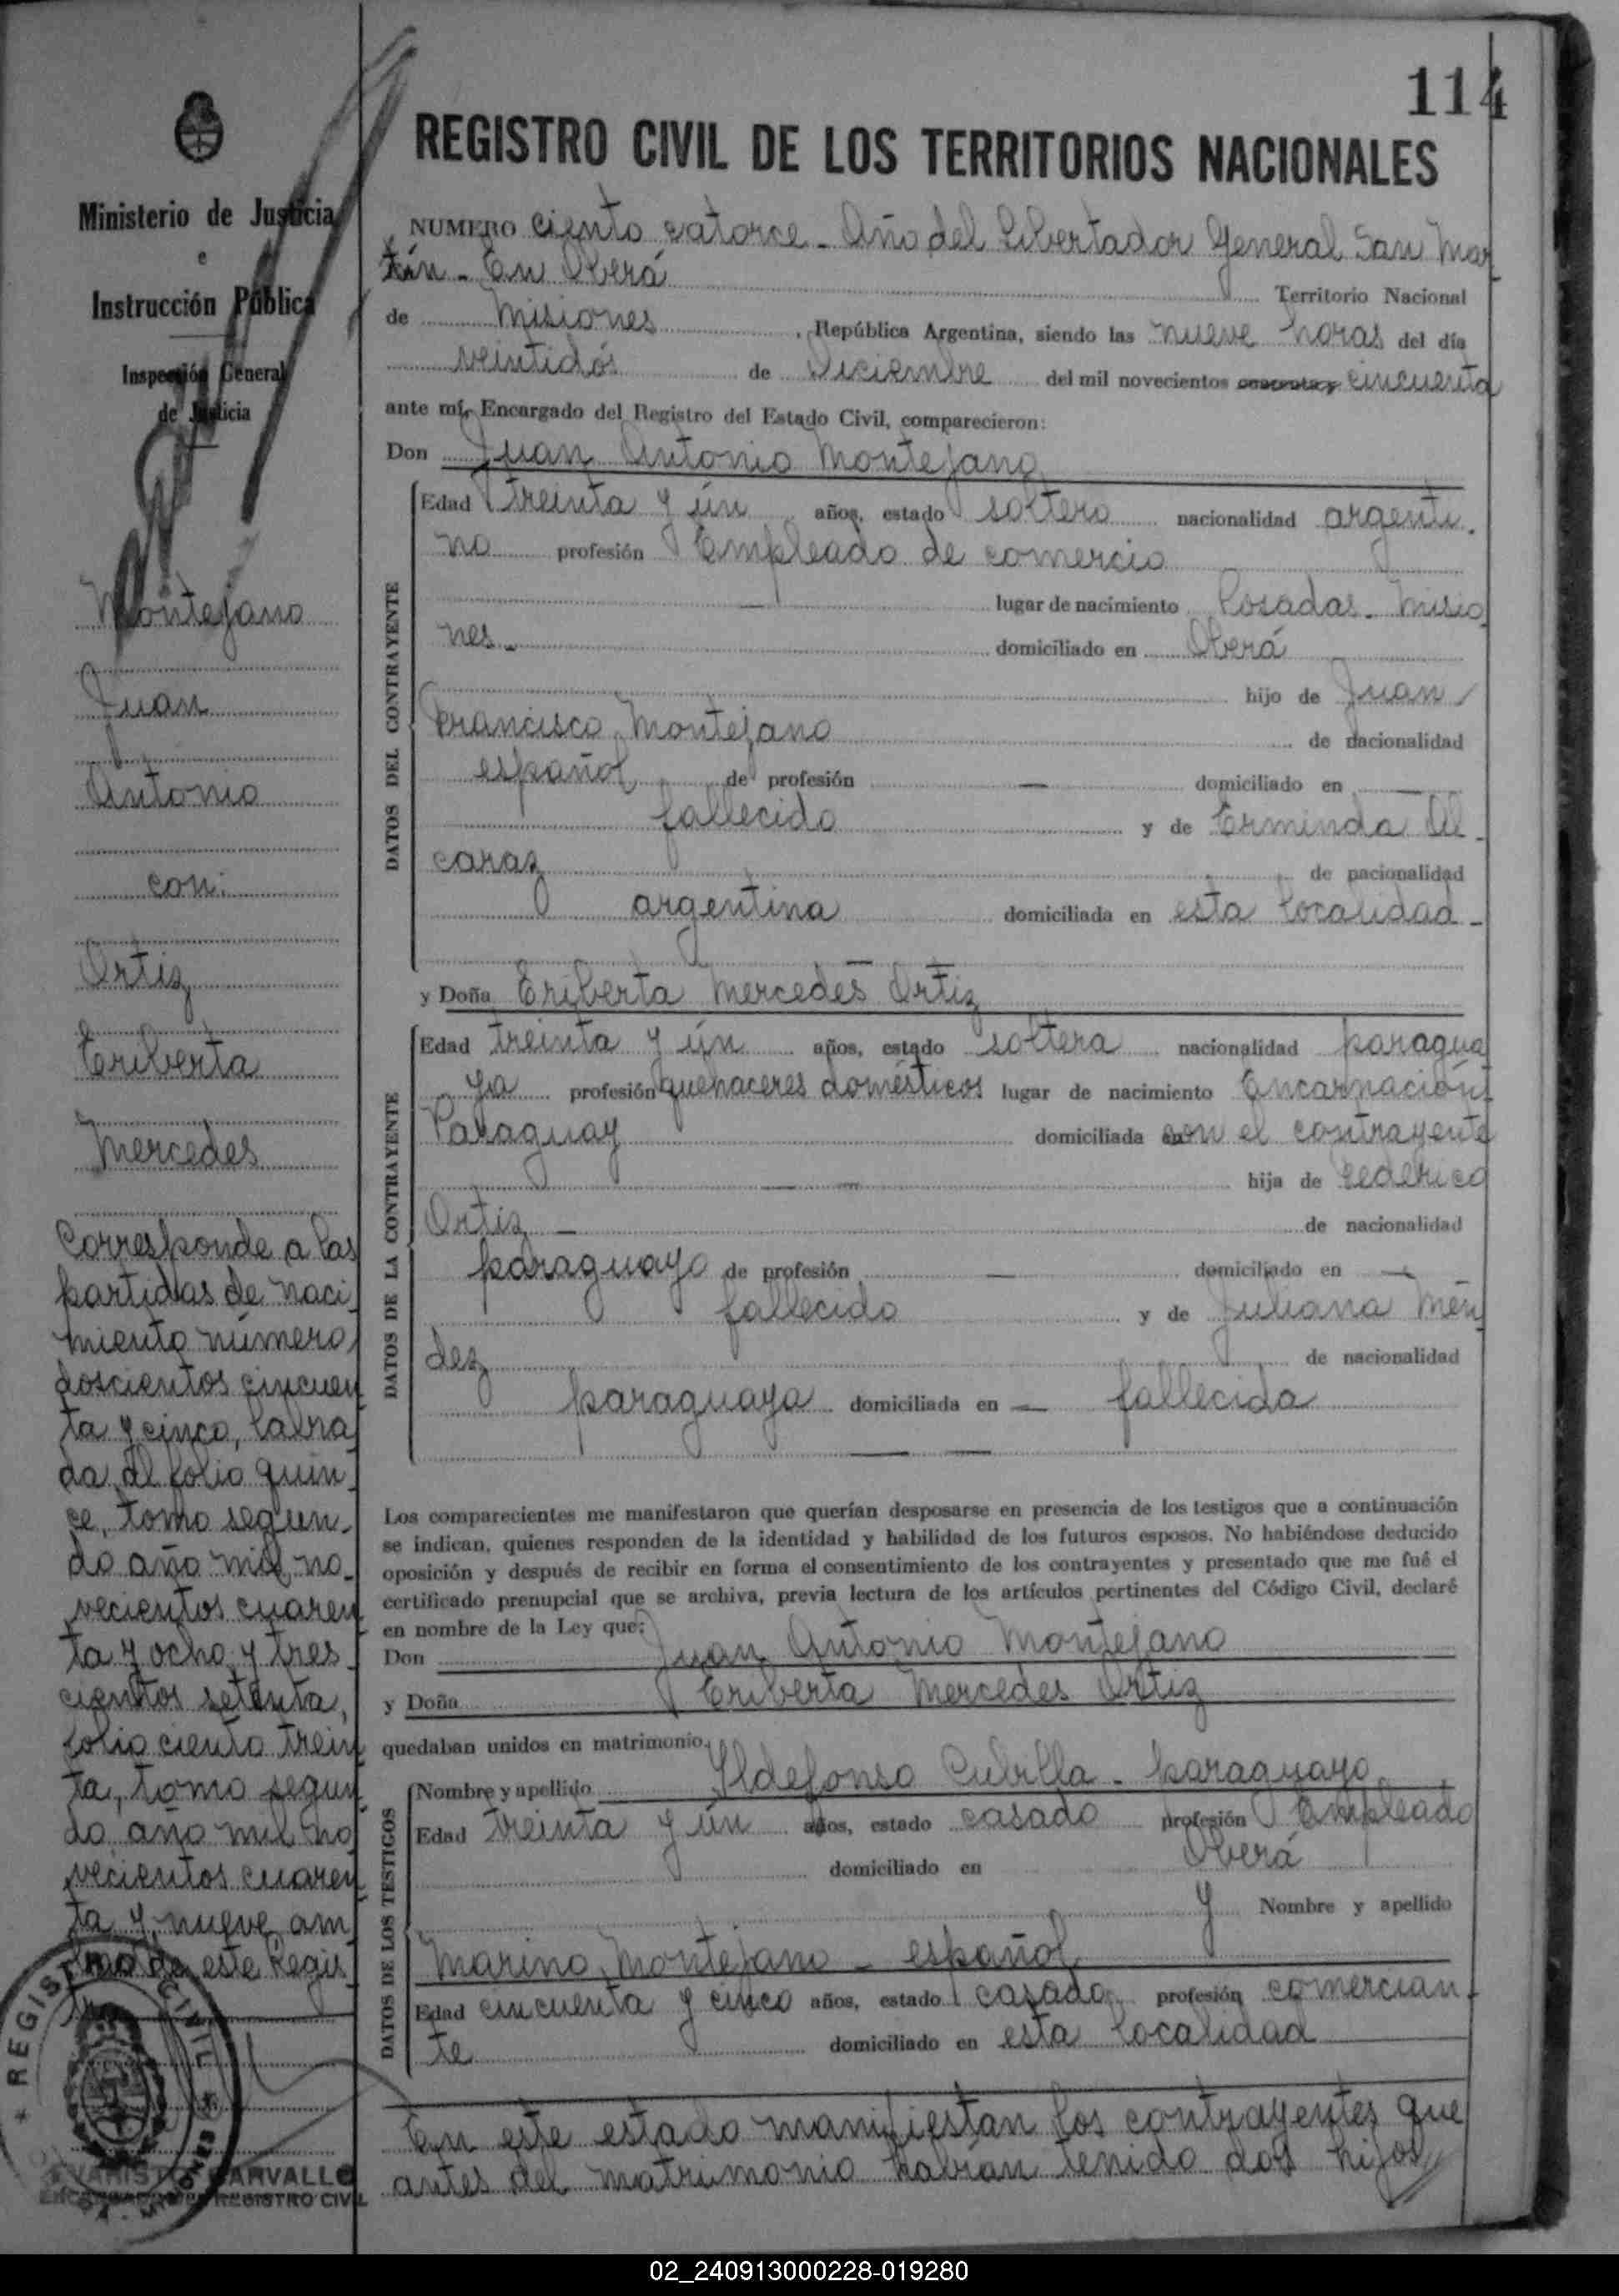 114
REGISTRO CIVIL DE LOS TERRITORIOS NACIONALES
Ministerio de Justicia
e
Instrucción Pública
Inspección General
de Justicia
Montejano
Juan
Antonio
con:
Ortiz
Eriberta
Mercedes
Corresponde a las
partidas de naci
miento número
doscientos cincuen
ta y cinco, labra
da al folio quin
ce, tomo segun-
do año mil no-
vecientos cuaren
ta y ocho y tres
cientos setenta,
folio ciento trein
ta, tomo segun
do año mil no
vecientos cuaren
ta y nueve am
bas de este Regis
tro
REGISTRO CIVIL
MISIONES
EVARISTO CARVALLO
ENCARGADO DEL REGISTRO CIVIL
NUMERO ciento catorce - Año del Libertador General San Mar
tín - En Oberá Territorio Nacional
de Misiones, República Argentina, siendo las nueve horas del día
veintidós de Diciembre del mil novecientos cuarenta y cincuenta
ante mí, Encargado del Registro del Estado Civil, comparecieron:
Don Juan Antonio Montejano
DATOS DEL CONTRAYENTE
Edad treinta y ún años, estado soltero nacionalidad argenti-
no profesión Empleado de comercio
lugar de nacimiento Posadas - Misio
nes - domiciliado en Oberá
hijo de Juan
Francisco Montejano de nacionalidad
español de profesión — domiciliado en —
fallecido y de Erminda Al-
caraz de nacionalidad
argentina domiciliada en esta localidad -
y Doña Eriberta Mercedes Ortiz
DATOS DE LA CONTRAYENTE
Edad treinta y ún años, estado soltera nacionalidad paragua
ya profesión quehaceres domésticos lugar de nacimiento Encarnación
Paraguay domiciliada con el contrayente
hija de Federico
Ortiz — de nacionalidad
paraguayo de profesión — domiciliado en —
fallecido y de Juliana Mén
dez de nacionalidad
paraguaya domiciliada en — fallecida
Los comparecientes me manifestaron que querían desposarse en presencia de los testigos que a continuación
se indican, quienes responden de la identidad y habilidad de los futuros esposos. No habiéndose deducido
oposición y después de recibir en forma el consentimiento de los contrayentes y presentado que me fué el
certificado prenupcial que se archiva, previa lectura de los artículos pertinentes del Código Civil, declaré
en nombre de la Ley que:
Don Juan Antonio Montejano
y Doña Eriberta Mercedes Ortiz
quedaban unidos en matrimonio.
DATOS DE LOS TESTIGOS
Nombre y apellido Ildefonso Cubilla - paraguayo
Edad treinta y ún años, estado casado profesión Empleado
domiciliado en Oberá
y Nombre y apellido
Marino Montejano - español
Edad cincuenta y cinco años, estado casado profesión comercian-
te domiciliado en esta localidad
En este estado manifiestan los contrayentes que
antes del matrimonio habían tenido dos hijos
02_240913000228-019280